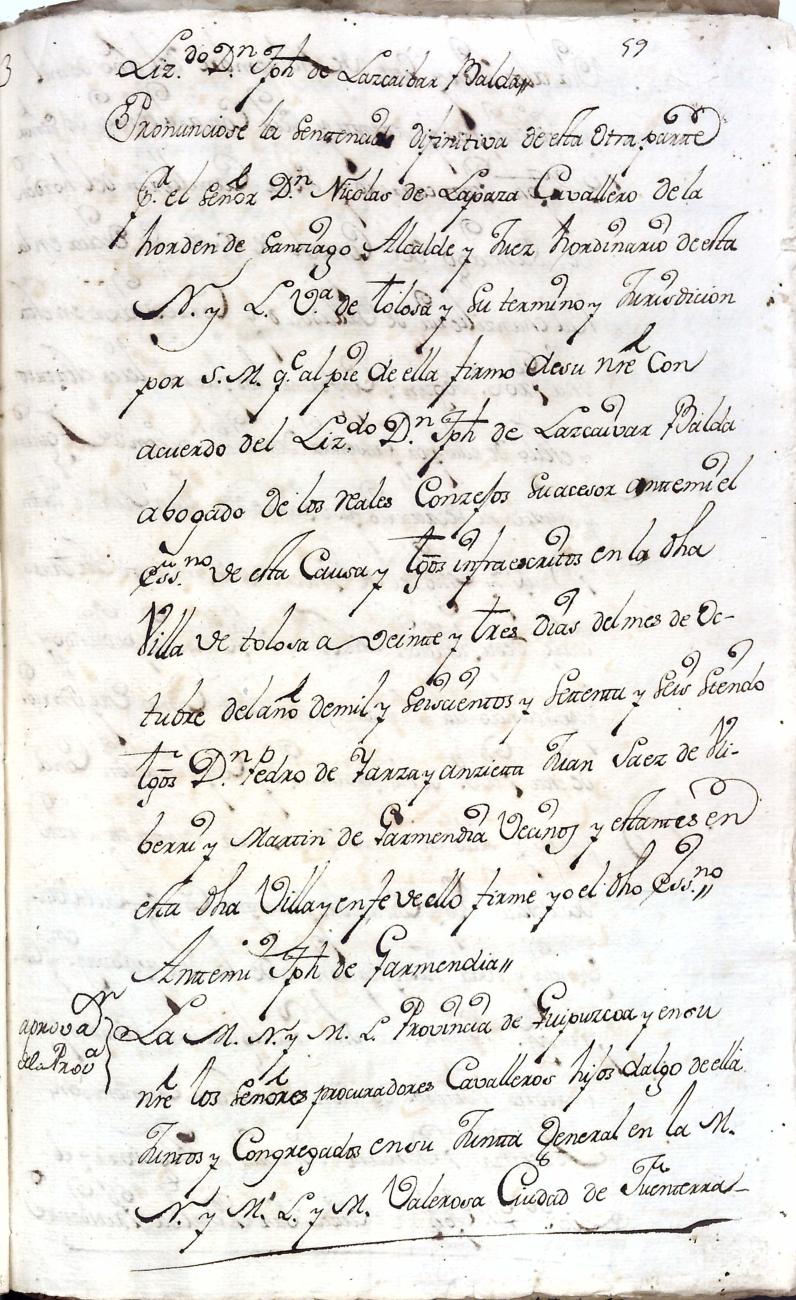 59
Liz.do D.n Jph de Lazcaibar Balda//
Pronunciose la sentencia difinitiva de esta otra parte
p.a el señor D.n Nicolas de Lapaza Cavallero de la
horden de Santiago Alcalde y Juez hordinario de esta
N. y L. V.a de tolosa y su termino y Jurisdicion
por S. M. q.e al pie de ella firmo de su nre Con
acuerdo del Liz.do D.n Jph de Lazcaivar Balda
abogado de los reales Consejos su acesor antemi el
ess.no de esta Causa y tgos infraescritos en la dha
Villa de tolosa a veinte y tres dias del mes de Oc-
tubre del año de mil y seiscientos y setenta y seis siendo
tgos D.n Pedro de Yarza y anzieta Juan Saez de Uli-
berri y Martin de Garmendia Vecinos y estantes en
esta dha Villa y en fe de ello firme yo el dho Ess.no//
Antemi Jph de Garmendia//
aprova.on
de la Prov.a
La M. N. y M. L. Provincia de Guipuzcoa y en su
nre los señores procuradores Cavalleros hijos dalgo de ella
Juntos y Congregados en su Junta General en la M.
N. y M. L. y M. Valerosa Ciudad de Fuenterra-